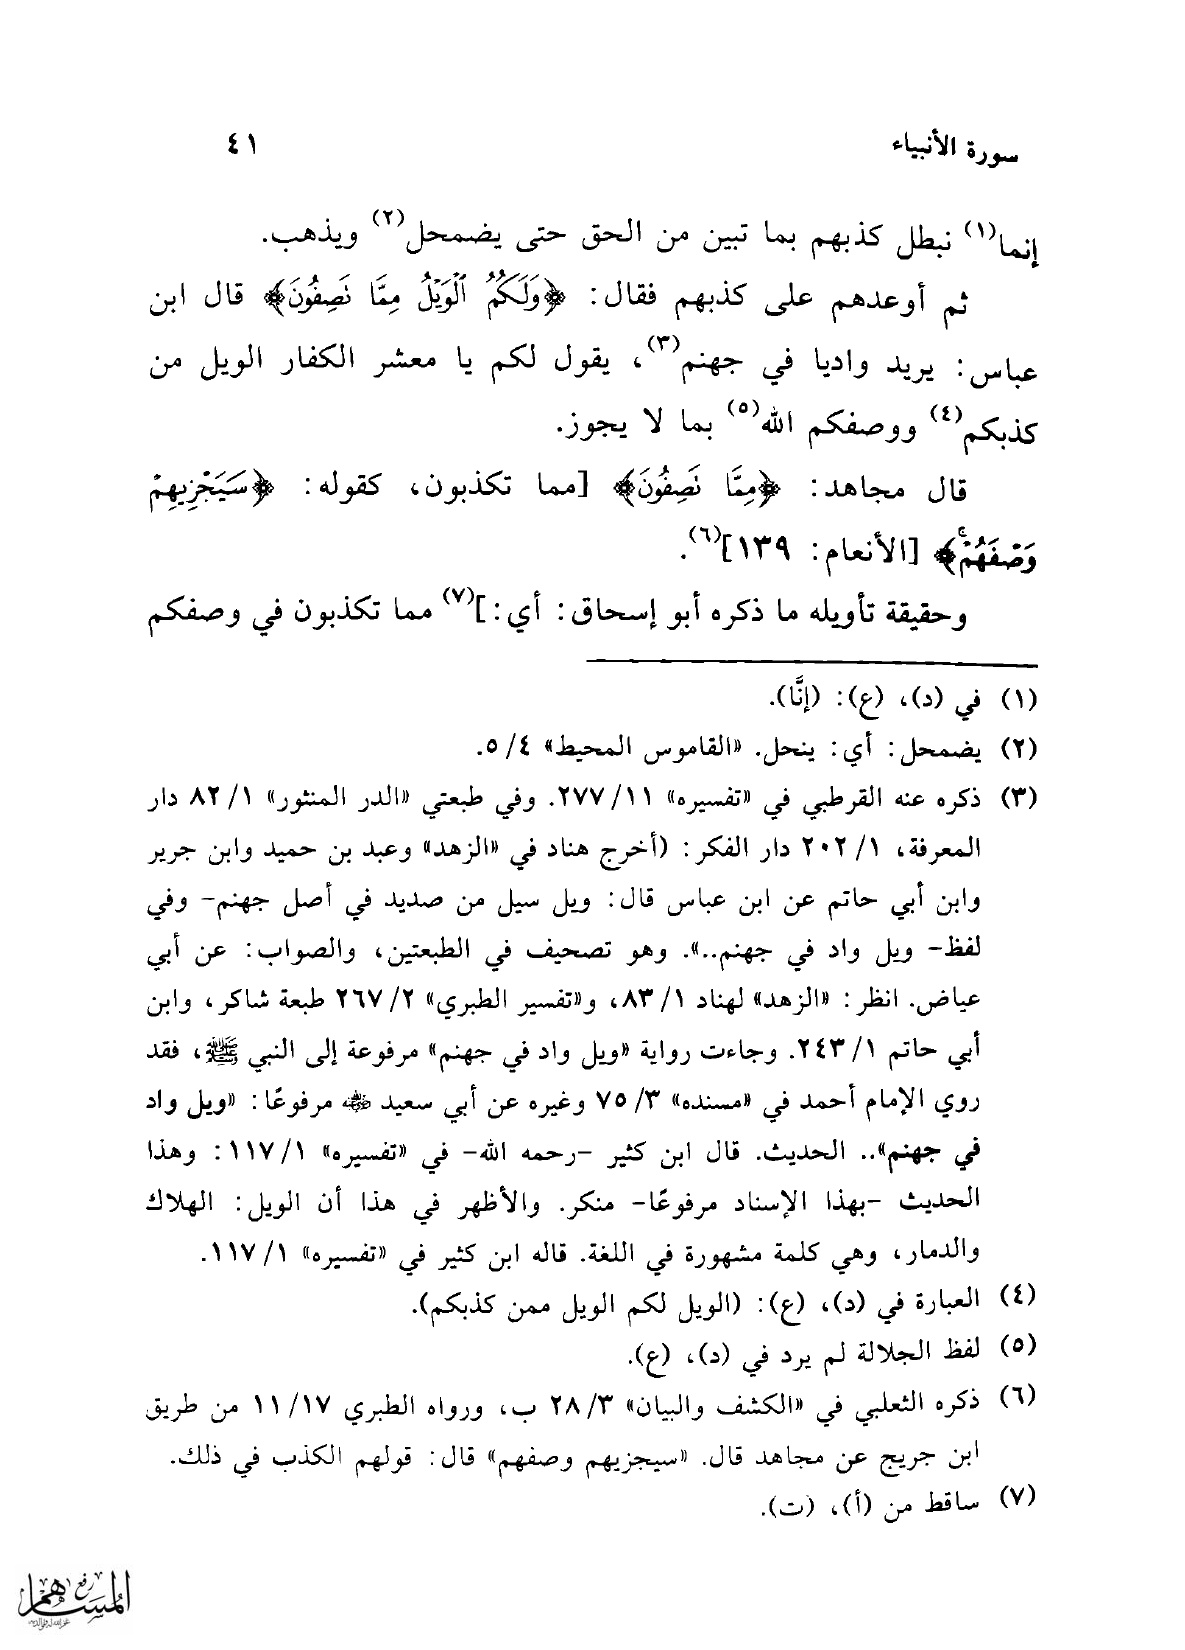 سورة الأنبياء ٤١
إنما(١) نبطل كذبهم بما تبين من الحق حتى يضمحل(٢) ويذهب.
ثم أوعدهم على كذبهم فقال: ﴿وَلَكُمُ ٱلْوَيْلُ مِمَّا نَصِفُونَ﴾ قال ابن
عباس: يريد واديا في جهنم(٣)، يقول لكم يا معشر الكفار الويل من
كذبكم(٤) ووصفكم الله(٥) بما لا يجوز.
قال مجاهد: ﴿مِمَّا نَصِفُونَ﴾ [مما تكذبون، كقوله: ﴿سَيَجْزِيهِمْ
وَصْفَهُمْ﴾ [الأنعام: ١٣٩](٦).
وحقيقة تأويله ما ذكره أبو إسحاق: أي:](٧) مما تكذبون في وصفكم
(١) في (د)، (ع): (إنَّا).
(٢) يضمحل: أي: ينحل. «القاموس المحيط» ٤/ ٥.
(٣) ذكره عنه القرطبي في «تفسيره» ١١/ ٢٧٧. وفي طبعتي «الدر المنثور» ١/ ٨٢ دار
المعرفة، ١/ ٢٠٢ دار الفكر: (أخرج هناد في «الزهد» وعبد بن حميد وابن جرير
وابن أبي حاتم عن ابن عباس قال: ويل سيل من صديد في أصل جهنم- وفي
لفظ- ويل واد في جهنم..». وهو تصحيف في الطبعتين، والصواب: عن أبي
عياض. انظر: «الزهد» لهناد ١/ ٨٣، و«تفسير الطبري» ٢/ ٢٦٧ طبعة شاكر، وابن
أبي حاتم ١/ ٢٤٣. وجاءت رواية «ويل واد في جهنم» مرفوعة إلى النبي ﷺ، فقد
روي الإمام أحمد في «مسنده» ٣/ ٧٥ وغيره عن أبي سعيد رضي الله عنه مرفوعًا: «ويل واد
في جهنم».. الحديث. قال ابن كثير -رحمه الله- في «تفسيره» ١/ ١١٧: وهذا
الحديث -بهذا الإسناد مرفوعًا- منكر. والأظهر في هذا أن الويل: الهلاك
والدمار، وهي كلمة مشهورة في اللغة. قاله ابن كثير في «تفسيره» ١/ ١١٧.
(٤) العبارة في (د)، (ع): (الويل لكم الويل ممن كذبكم).
(٥) لفظ الجلالة لم يرد في (د)، (ع).
(٦) ذكره الثعلبي في «الكشف والبيان» ٣/ ٢٨ ب، ورواه الطبري ١٧/ ١١ من طريق
ابن جريج عن مجاهد قال. «سيجزيهم وصفهم» قال: قولهم الكذب في ذلك.
(٧) ساقط من (أ)، (ت).
رفع
المساهم